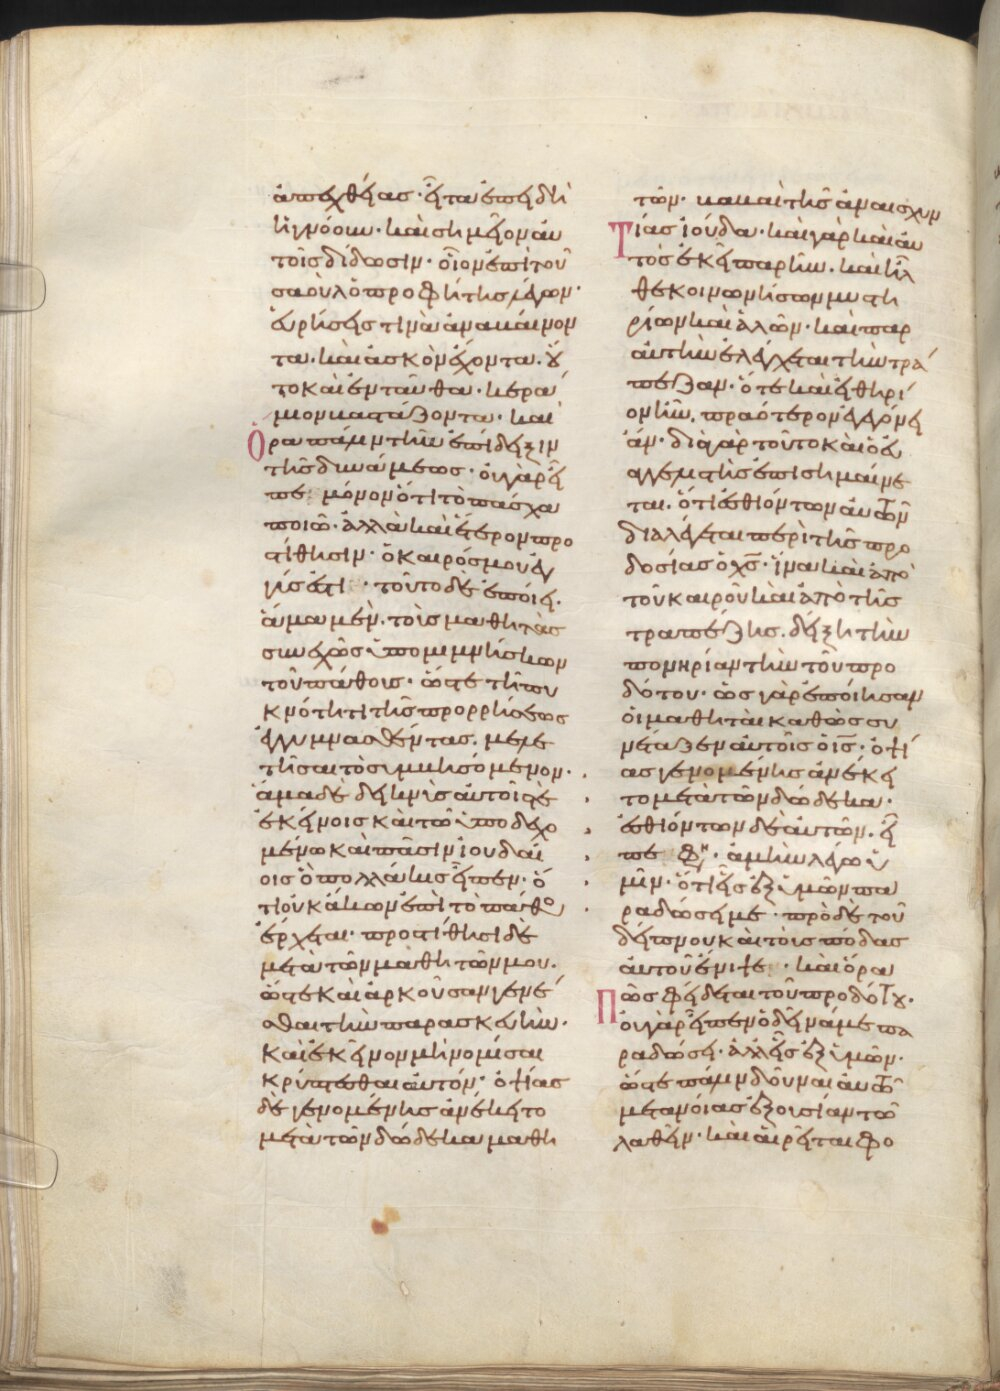 ἀπεχθείας· εἶτα ἐπειδὴ
ἠγνόουν· καὶ σημεῖον αὐ
τοῖς δίδωσιν· οἷον ἐπὶ τοῦ
σαοὺλ ὁ προφήτης λέγων·
εὑρήσεις τινὰ ἀναβαίνον
τα· καὶ ἀσκὸν ἔχοντα· οὕ
το καὶ ἐνταῦθα· κερά
μιον βαστάζοντα· καὶ
ὅρα πάλιν τὴν ἐπίδειξιν
τῆς δυνάμεως· οὐ γὰρ εἶ
πε μόνον ὅτι τὸ πάσχα
ποιῶ· ἀλλὰ καὶ ἕτερον προ
στίθησιν· ὁ καιρός μου ἐγ
γύς ἐστι· τοῦτο δὲ ἐποίει·
ἅμα μὲν τοῖς μαθητὰς
συνεχῶς ὑπομιμνήσκων
τοῦ πάθους· ὥστε τῆ πυ
κνότητι τῆς προρρήσεως
ἐγγυμνασθέντας· μελε
τῆσαι τὸ συμβησόμενον·
ἅμα δὲ δεικνὺς αὐτοῖς τὲ
ἐκείνοις καὶ τῶ ὑποδεχο
μένω καὶ πᾶσιν ἰουδαί
οις ὃ πολλάκις εἶπεν· ὅ
τι οὐκ ἄκων ἐπὶ τὸ πάθος
ἔρχεται· προστίθησι δὲ
μετὰ τῶν μαθητῶν μου·
ὥστε καὶ ἀρκοῦσαν γενέ
σθαι τὴν παρασκευὴν·
καὶ ἐκεῖνον μὴ νομίσαι
κρύπτεσθαι αὐτόν· ὀψίας
δὲ γενομένης ἀνέκειτο
μετὰ τῶν δώδεκα μαθη
τῶν· βαβαὶ τῆς ἀναισχυν
τίας ἰούδα· καὶ γὰρ καὶ αὐ
τὸς ἐκεῖ παρῆν· καὶ ἦλ
θε κοινωνήσων μυστη
ρίων καὶ ἁλῶν· καὶ παρ
αὐτὴν ἐλέγχεται τὴν τρά
πεζαν· ὅτε καὶ εἰ θηρί
ον ἦν, πραότερον ἐγένει
ἄν· διὰ γὰρ τοῦτο καὶ ὁ εὐ
αγγελιστὴς ἐπισημαίνε
ται· ὅτι ἐσθιόντων αὐτῶν
διαλέγεται περὶ τῆς προ
δοσίας ὁ χς· ἵνα καὶ ἀπὸ
τοῦ καιροῦ καὶ ἀπὸ τῆς
τραπέζης· δείξη τὴν
πονηρίαν τὴν τοῦ προ
δότου· ὡς γὰρ ἐποίησαν
οἱ μαθηταὶ καθὼς συ
νέταξεν αὐτοῖς ὁ ις· ὀψί
ας γενομένης ἀνέκει
το μετὰ τῶν δώδεκα·
ἐσθιόντων δὲ αὐτῶν· εἶ
πε φη· ἀμὴν λέγω ὑ
μῖν· ὅτι εἷς ἐξ ὑμῶν πα
ραδώσει με· πρὸ δὲ τοῦ
δείπνου καὶ τοὺς πόδας
αὐτοῦ ἔνιψε· καὶ ὅρα
πῶς φείδεται τοῦ προδότου·
οὐ γὰρ εἶπεν ὁ δεῖνά με πα
ραδώσει· ἀλλ' εἷς ἐξ ὑμῶν·
ὥστε πάλιν δοῦναι αὐτῶ
μετανοίας ἐξουσίαν τῶ
λαθεῖν· καὶ αἱρεῖται φο